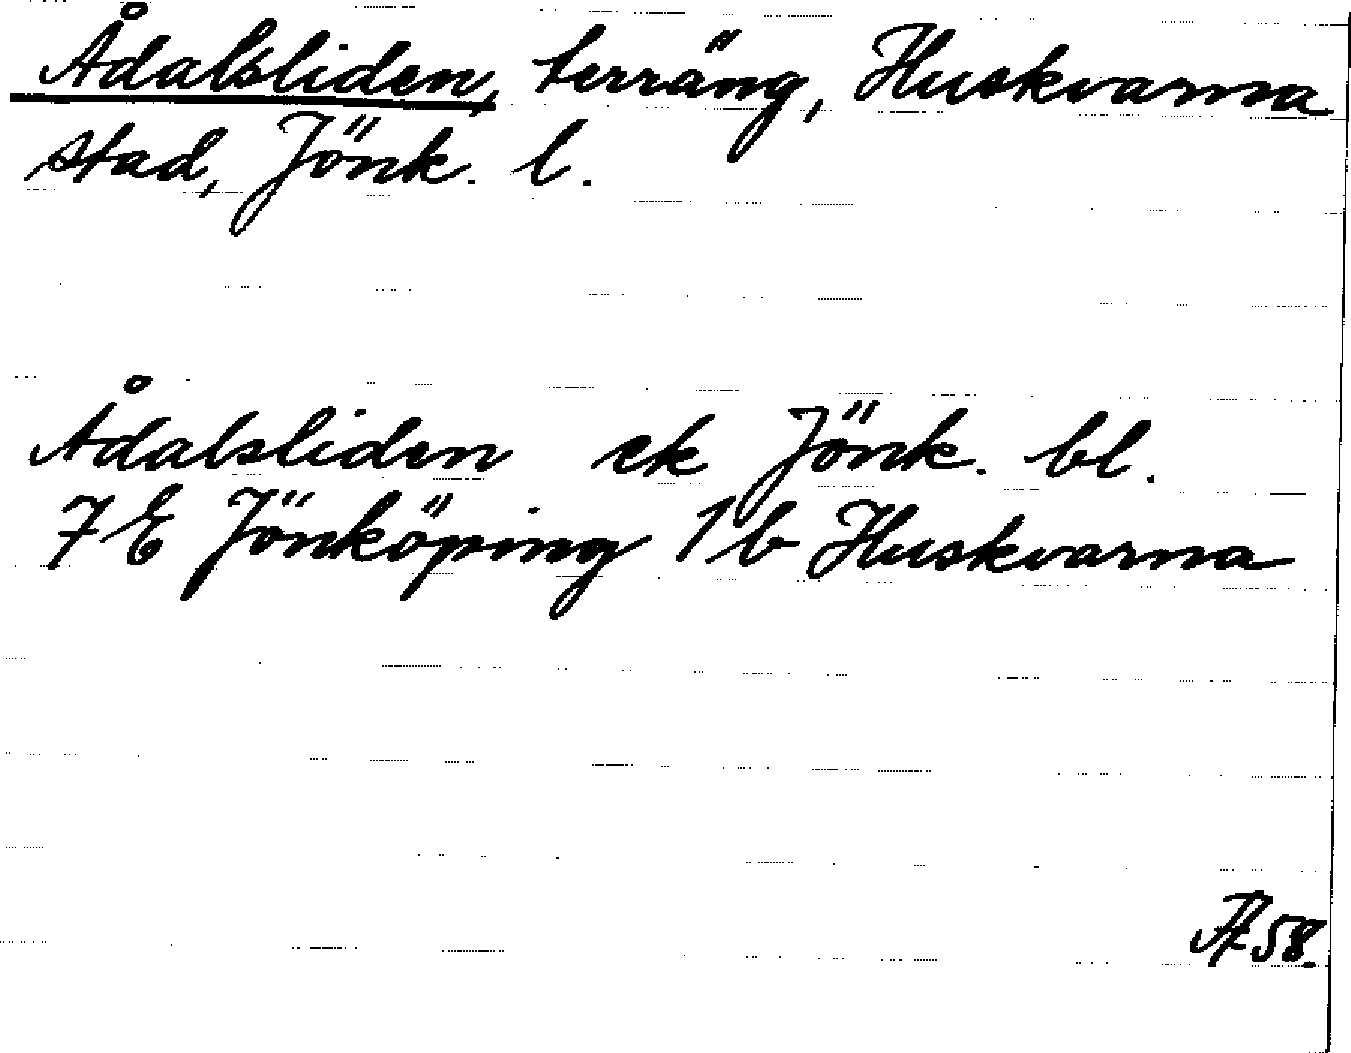 Ådalsliden, terräng, Huskvarna
stad, Jönk. l.
Ådalsliden ek Jönk. bl.
7E Jönköping 1b Huskvarna
58.